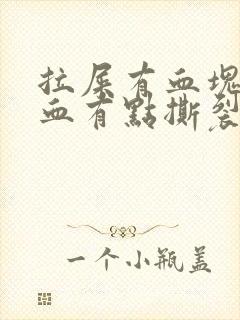 拉屎有血塊
血有點撕裂
一个小瓶盖